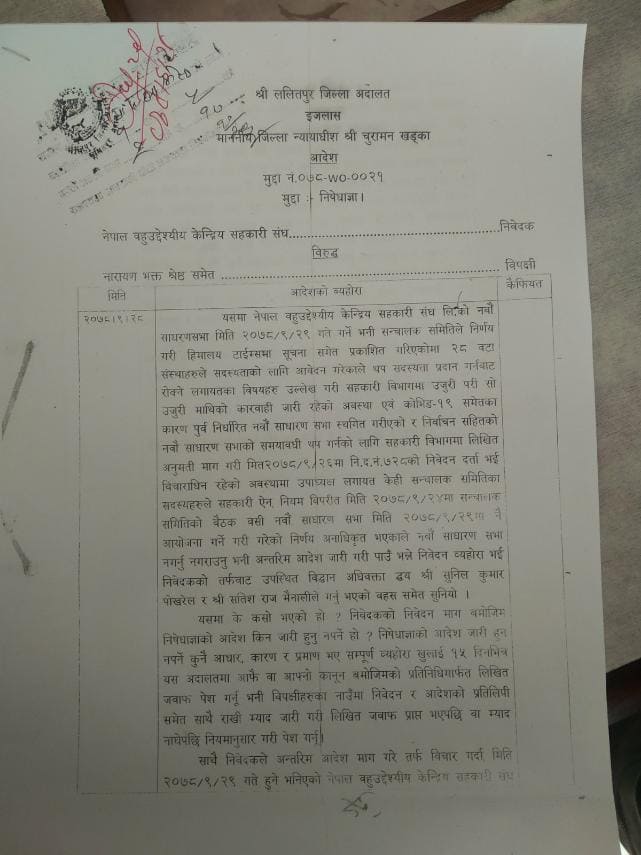 श्री ललितपुर जिल्ला अदालत
इजलास
माननीय जिल्ला न्यायाधीश श्री चुरामन खड्का
आदेश
मुद्दा नं.०७८-WO-००२१
मुद्दा :- निषेधाज्ञा।
नेपाल वहुउद्देश्यीय केन्द्रिय सहकारी संघ..........................................निवेदक
विरुद्ध
नारायण भक्त श्रेष्ठ समेत ....................................................... विपक्षी
मिति आदेशको व्यहोरा कैफियत
२०७८।९।२८ यसमा नेपाल वहुउद्देश्यीय केन्द्रिय सहकारी संघ लि.को नवौं
साधरणसभा मिति २०७८/९/२९ गते गर्ने भनी सन्चालक समितिले निर्णय
गरी हिमालय टाईम्समा सूचना समेत प्रकाशित गरिएकोमा २८ वटा
संस्थाहरुले सदस्यताको लागि आवेदन गरेकाले थप सदस्यता प्रदान गर्नबाट
रोक्ने लगायतका विषयहरु उल्लेख गरी सहकारी विभागमा उजुरी परी सो
उजुरी माथिको कारवाही जारी रहेको अवस्था एवं कोभिड-१९ समेतका
कारण पुर्व निर्धारित नवौं साधारण सभा स्थगित गरीएको र निर्वाचन सहितको
नवौं साधारण सभाको समयावधी थप गर्नको लागि सहकारी विभागमा लिखित
अनुमती माग गरी मित२०७८/९/२६मा नि.द.नं.७२८को निवेदन दर्ता भई
विचाराधिन रहेको अवस्थामा उपाध्यक्ष लगायत केही सन्चालक समितिका
सदस्यहरुले सहकारी ऐन, नियम विपरीत मिति २०७८/९/२४मा सन्चालक
समितिको बैठक वसी नवौं साधारण सभा मिति २०७८/९/२९मा नै
आयोजना गर्ने गरी गरेको निर्णय अनाधिकृत भएकाले नवौं साधारण सभा
नगर्नु नगराउनु भनी अन्तरिम आदेश जारी गरी पाउँ भन्ने निवेदन व्यहोरा भई
निवेदकको तर्फवाट उपस्थित विद्वान अधिवक्ता द्वय श्री सुनिल कुमार
पोखरेल र श्री सतिश राज मैनालीले गर्नु भएको वहस समेत सुनियो ।
यसमा के कसो भएको हो ? निवेदकको निवेदन माग बमोजिम
निषेधाज्ञाको आदेश किन जारी हुनु नपर्ने हो ? निषेधाज्ञाको आदेश जारी हुन
नपर्ने कुनै आधार, कारण र प्रमाण भए सम्पूर्ण व्यहोरा खुलाई १५ दिनभित्र
यस अदालतमा आफै वा आफ्नो कानून बमोजिमको प्रतिनिधिमार्फत लिखित
जवाफ पेश गर्नू भनी विपक्षीहरुका नाउँमा निवेदन र आदेशको प्रतिलिपी
समेत साथै राखी म्याद जारी गरी लिखित जवाफ प्राप्त भएपछि वा म्याद
नाघेपछि नियमानुसार गरी पेश गर्नू।
साथै निवेदकले अन्तरिम आदेश माग गरे तर्फ विचार गर्दा मिति
२०७८/९/२९ गते हुने भनिएको नेपाल वहुउद्देश्यीय केन्द्रिय सहकारी संघ